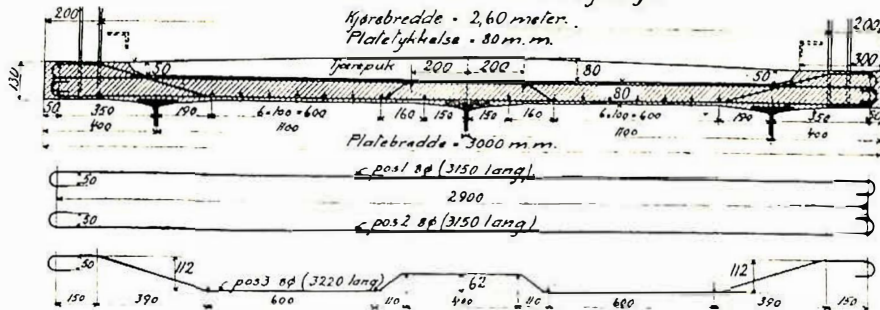 Kjørebredde = 2,60 meter.
Platetykkelse = 80 m.m.
200
200
50
Tjærepuk
200
200
80
50
300
130
80
50
350
190
6×100=600
160
150
150
160
6×100=600
190
350
50
400
1100
1100
400
Platebredde = 3000 m.m.
50
pos1 8ø (3150 lang)
2900
50
pos2 8ø (3150 lang)
50
112
pos3 8ø (3220 lang)
62
112
150
390
600
110
400
110
600
390
150